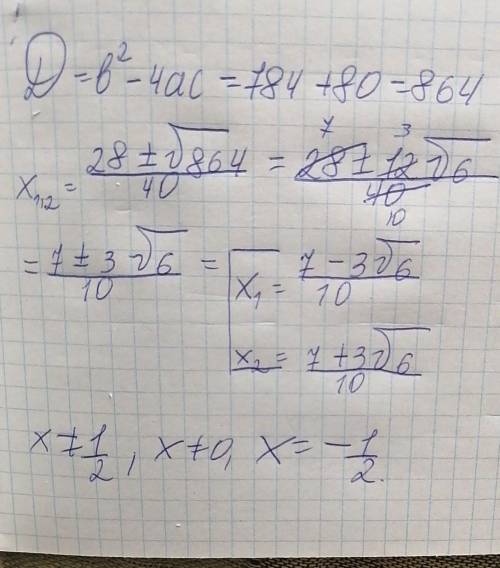 D = b² - 4ac = 784 + 80 = 864
x₁,₂ = (28 ± √864)/40 = (28 ± 12√6)/40 7 3 10
= (7 ± 3√6)/10 = [x₁ = (7 - 3√6)/10
x₂ = (7 + 3√6)/10
x ≠ 1/2, x ≠ 0, x = -1/2.